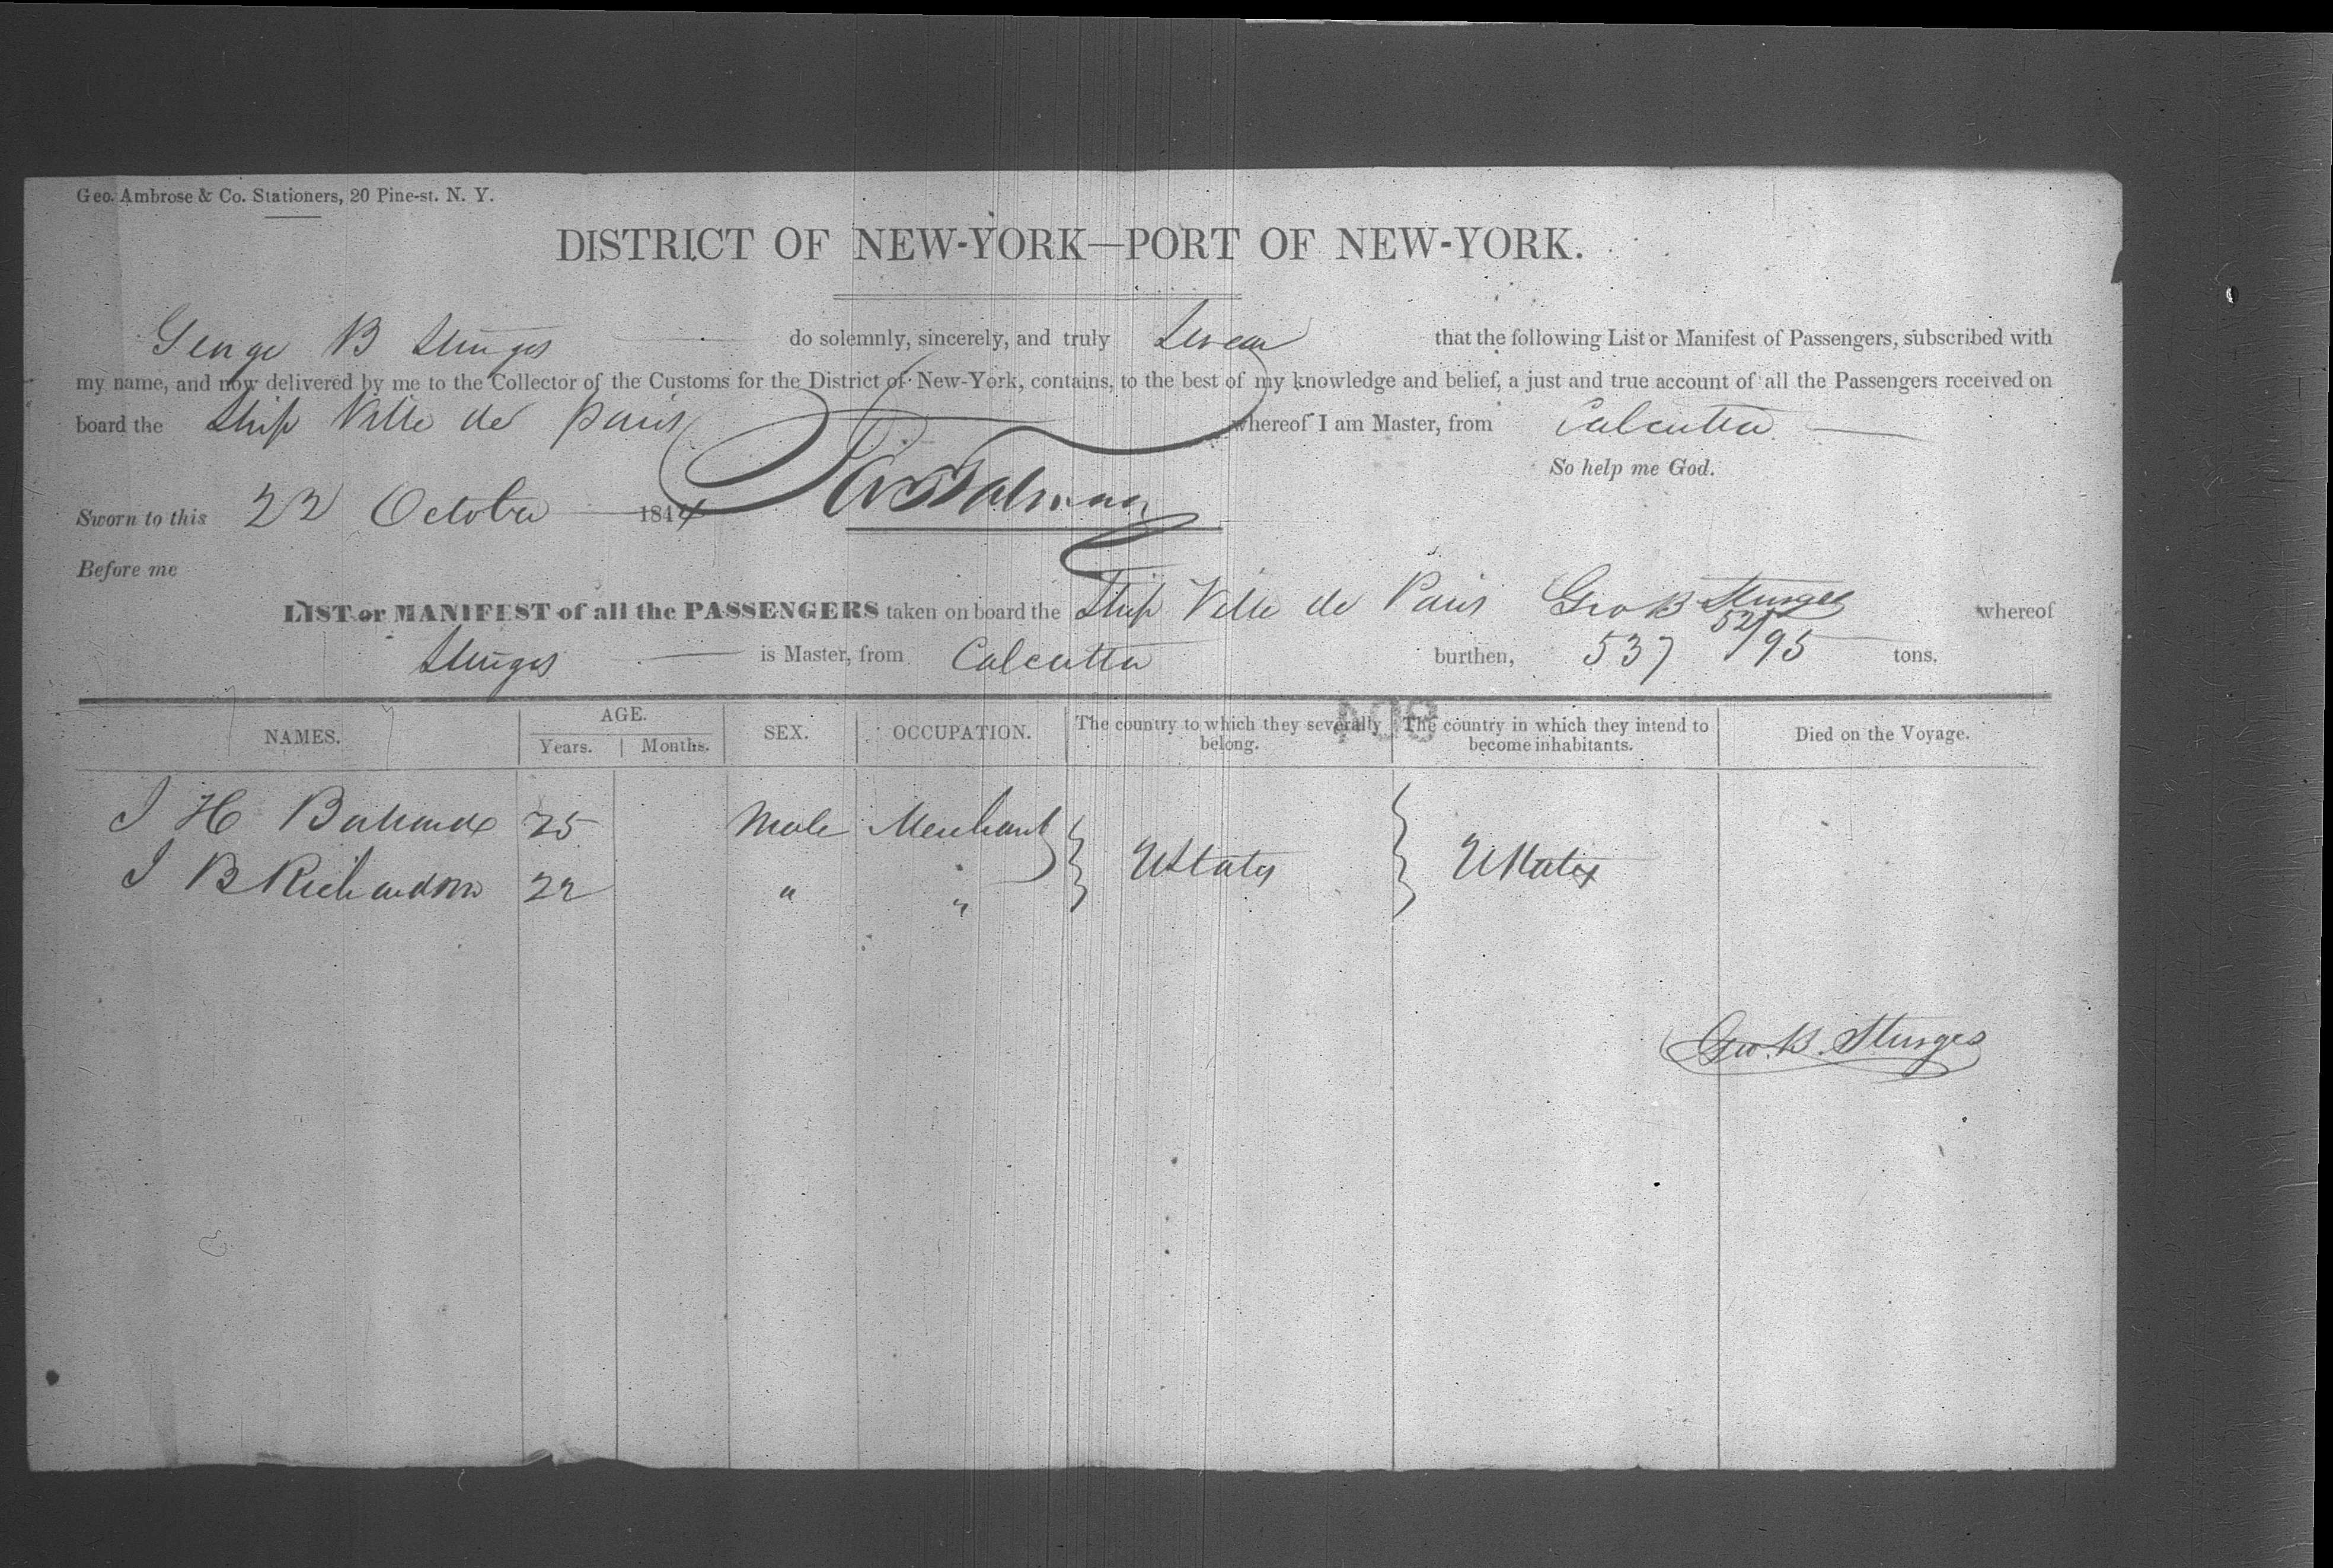 Geo. Ambrose & Co. Stationers, 20 Pine-st. N. Y.
DISTRICT OF NEW-YORK—PORT OF NEW-YORK.
George B Sturges do solemnly, sincerely, and truly Swear that the following List or Manifest of Passengers, subscribed with
my name, and now delivered by me to the Collector of the Customs for the District of New-York, contains, to the best of my knowledge and belief, a just and true account of all the Passengers received on
board the Ship Ville de Paris whereof I am Master, from Calcutta
So help me God.
Sworn to this 22 October 1844
Before me
LIST or MANIFEST of all the PASSENGERS taken on board the Ship Ville de Paris Geo B Sturges whereof
Sturges is Master, from Calcutta burthen, 537 52/95 tons.
NAMES. AGE. Years. Months. SEX. OCCUPATION. The country to which they severally belong. The country in which they intend to become inhabitants. Died on the Voyage.
J H 25 Male Merchant UStates UStates
J B Richardson 22 " "
Geo. B. Sturges